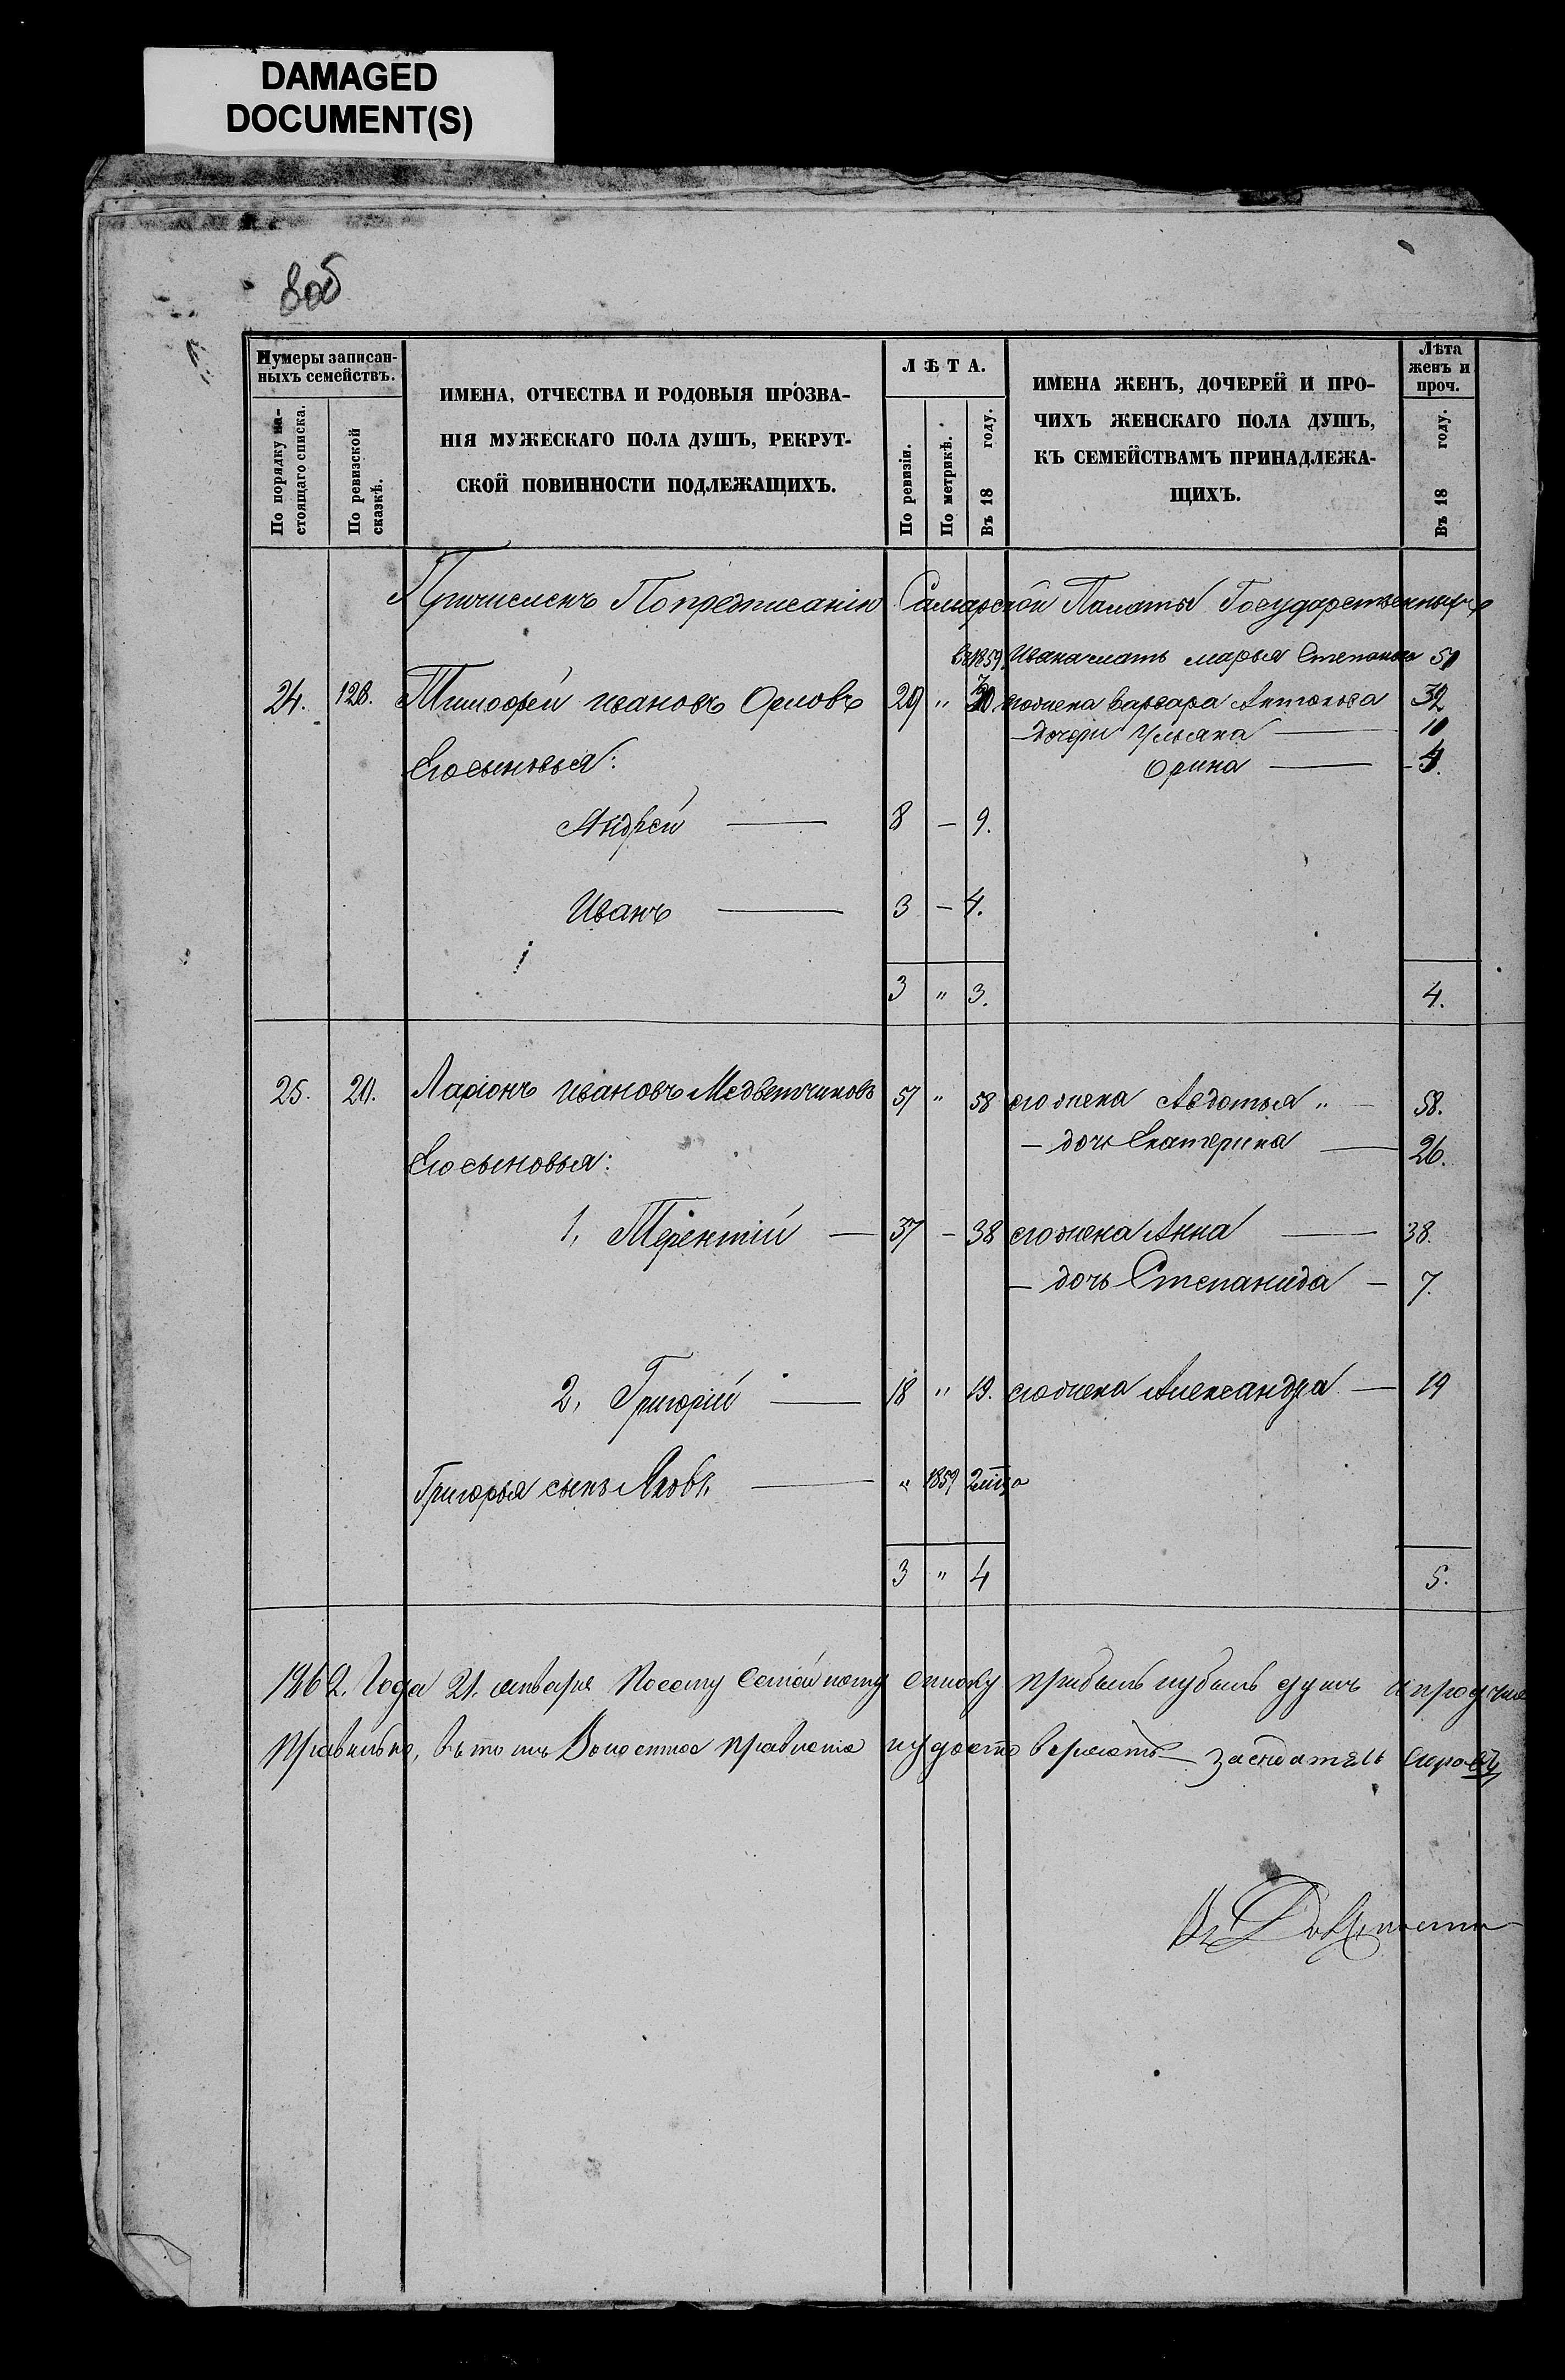 DAMAGED
DOCUMENT(S)
8об
Нумеры записан-
ныхъ семействъ.
По порядку на-
стоящаго списка.
По ревизской
сказкѣ.
ИМЕНА, ОТЧЕСТВА И РОДОВЫЯ ПРОЗВА-
НІЯ МУЖЕСКАГО ПОЛА ДУШЪ, РЕКРУТ-
СКОЙ ПОВИННОСТИ ПОДЛЕЖАЩИХЪ.
ЛѢТА.
По ревизіи.
По метрикѣ.
Въ 18 году.
ИМЕНА ЖЕНЪ, ДОЧЕРЕЙ И ПРО-
ЧИХЪ ЖЕНСКАГО ПОЛА ДУШЪ,
КЪ СЕМЕЙСТВАМЪ ПРИНАДЛЕЖА-
ЩИХЪ.
Лѣта
женъ и
проч.
Въ 18 году.
Причисленъ По предписанію Самарской Палаты Государственныхъ
1859. Ивана мать марья Степанова 51
24. 128. Тимофей ивановъ Орловъ 29 " 30 его жена варвара Антонова 32
— дочери Ульяна — 10
Его сыновья: Орина — 4.
Андрей — 8 — 9.
Иванъ — 3 — 4.
3 " 3. 4.
25. 20. Ларіонъ ивановъ Медветчиковъ 57 " 58 его жена Авдотья " — 58.
— дочь Екатерина — 26.
Его сыновья:
1, Терентій — 37 — 38 его жена Анна — 38.
— дочь Степанида — 7.
2, Григорій — 18 " 19. его жена Александра — 19
Григорья сынъ Яковъ — " 1859
3 " 4 5.
1862. Года 21. января Посему Семейному списку прибыль иубыль душъ
Правильно, въ томъ Волостное правленіе иудостоверяетъ — Заседатель